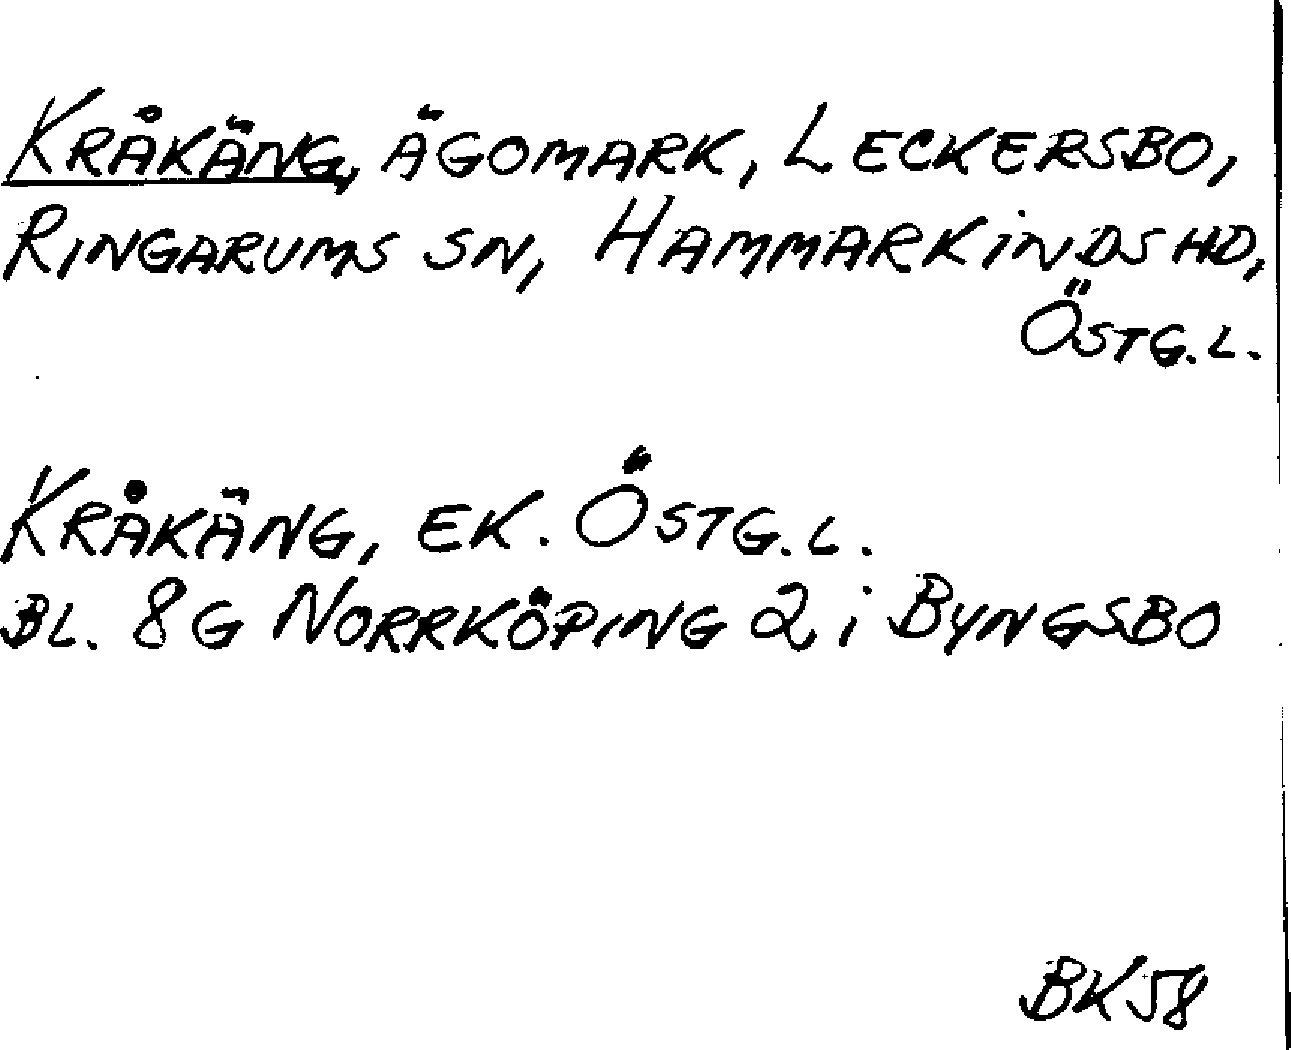 KRÅKÄNG, ÄGOMARK, LECKERSBO,
RINGARUMS SN, HAMMARKINDS HD,
ÖSTG. L.
KRÅKÄNG, EK. ÖSTG. L.
BL. 8G NORRKÖPING 2 i BYNGSBO
BK 58